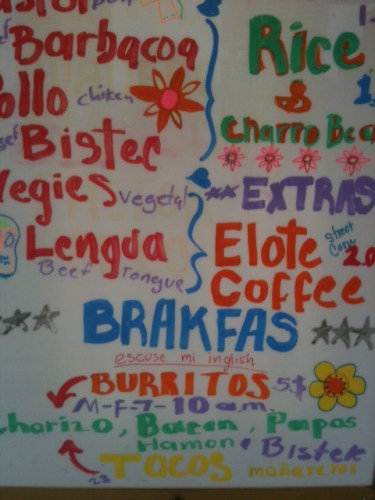 Barbacoa
Pollo chicken
Bistec
Vegies Vegetal
Lengua
Beef Tongue
Rice
&
Charro Bea
** EXTRAS
Elote street corn 2.0
Coffee
BRAKFAS
escuse mi inglish
BURRITOS 5$
M-F-7-10 a.m.
Chorizo, Bacon, Papas
Hamon, Bistek
TACOS mañaneros